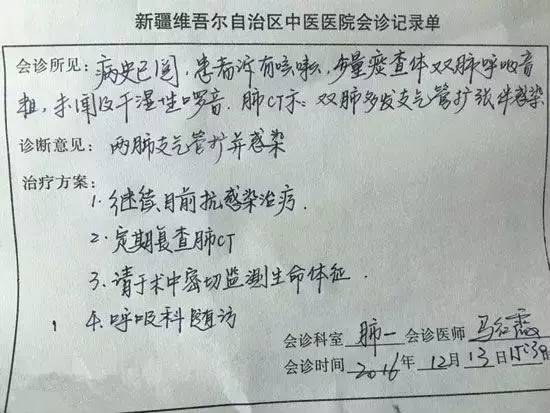 新疆维吾尔自治区中医医院会诊记录单
会诊所见：病史已阅，患者诉有咳嗽，少量痰查体双肺呼吸音
粗，未闻及干湿性啰音．肺CT示：双肺多发支气管扩张伴感染
诊断意见：两肺支气管扩并感染
治疗方案：
1．继续目前抗感染治疗．
2．定期复查肺CT
3．请于术中密切监测生命体征．
4．呼吸科随访
会诊科室 肺一 会诊医师 马红霞
会诊时间 2016年 12月 13日 15:30